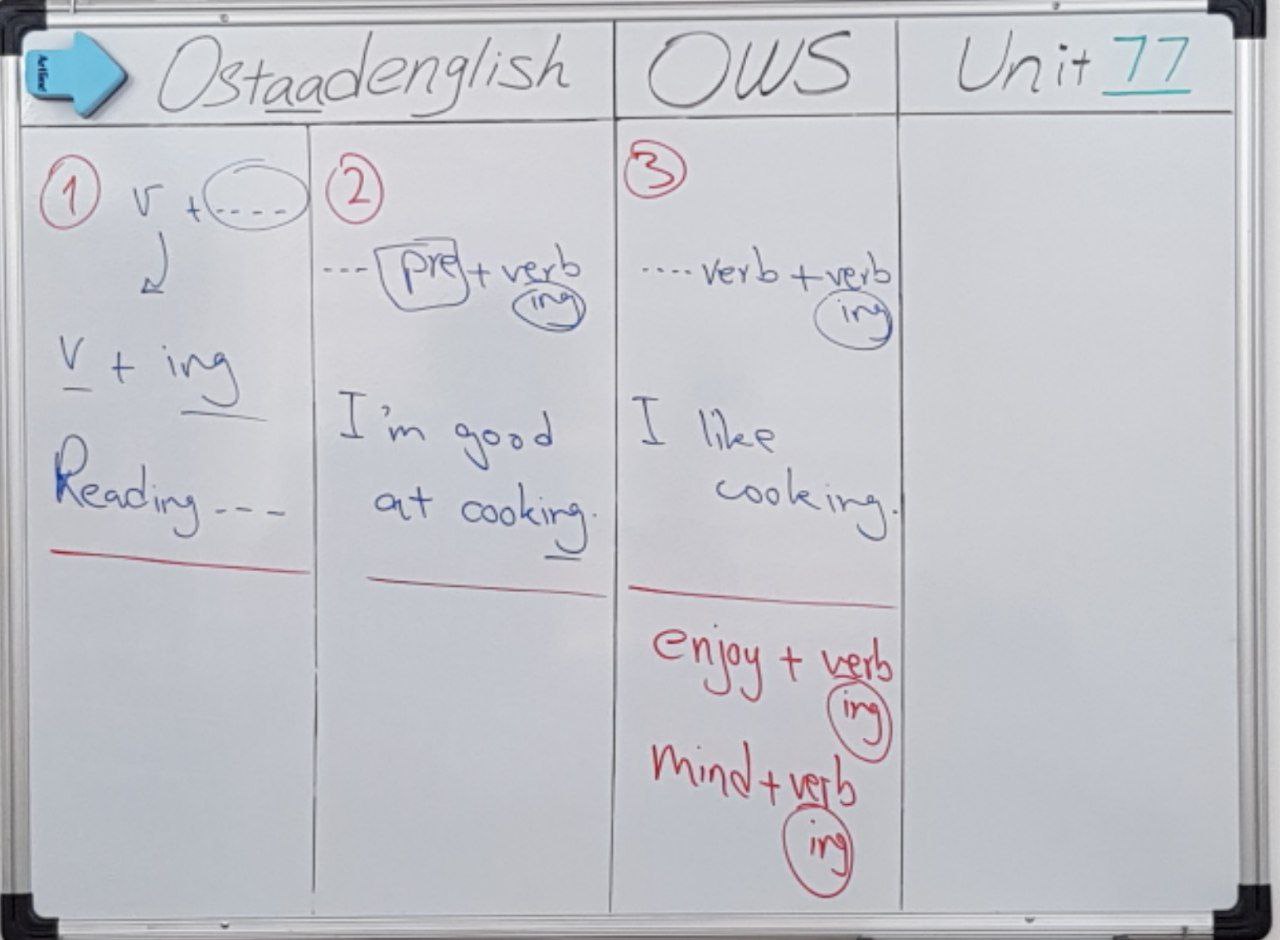 Ostaadenglish OWS Unit 77
1 v + ----
v + ing
Reading ---
2
--- pre + verb
ing
I'm good
at cooking.
3
.... verb + verb
ing
I like
cooking.
enjoy + verb
ing
mind + verb
ing